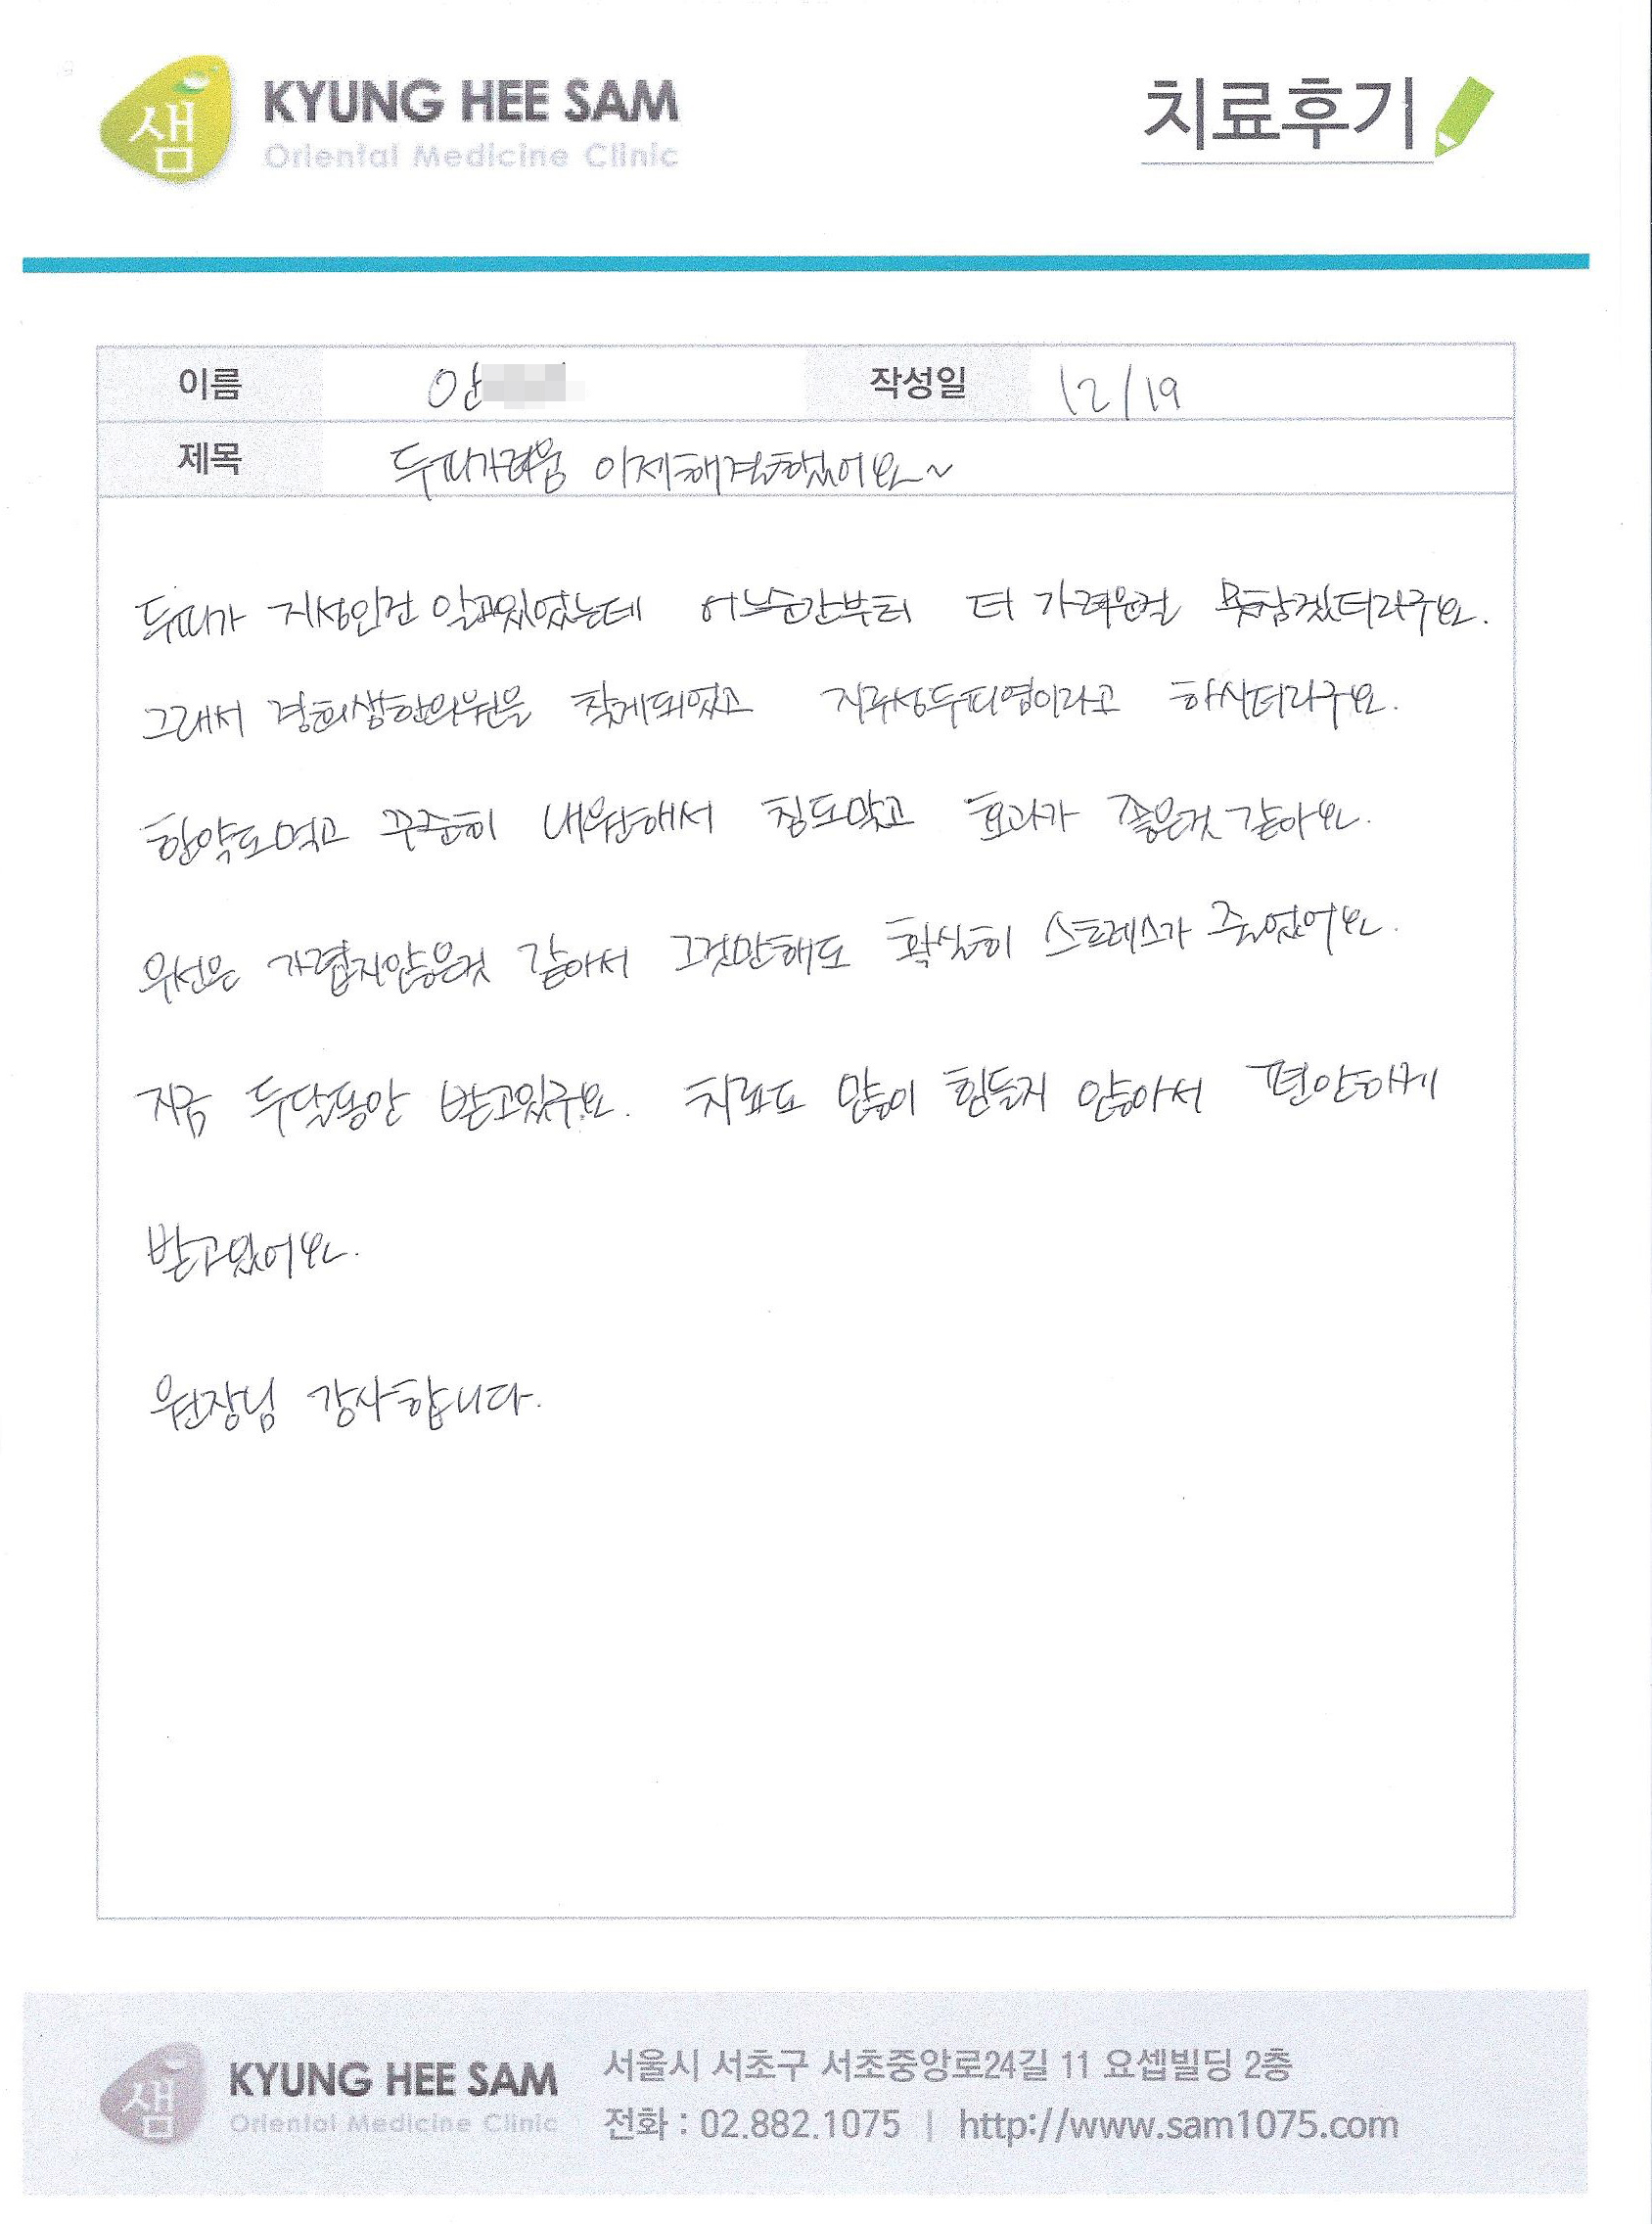 샘 KYUNG HEE SAM
Oriental Medicine Clinic
치료후기
이름 안 작성일 12/19
제목 두피가려움 이제해결했어요~
두피가 지성인건 알고있었는데 어느순간부터 더 가려운걸 못참겠더라구요.
그래서 경희샘한의원을 찾게되었고 지루성두피염이라고 하시더라구요.
한약도먹고 꾸준히 내원해서 침도맞고 효과가 좋은것 같아요.
우선은 가렵지않은것 같아서 그것만해도 확실히 스트레스가 줄었어요.
지금 두달동안 받고있구요. 치료도 많이 힘들지 않아서 편안하게
받고있어요.
원장님 감사합니다.
샘 KYUNG HEE SAM
Oriental Medicine Clinic
서울시 서초구 서초중앙로24길 11 요셉빌딩 2층
전화 : 02.882.1075 | http://www.sam1075.com